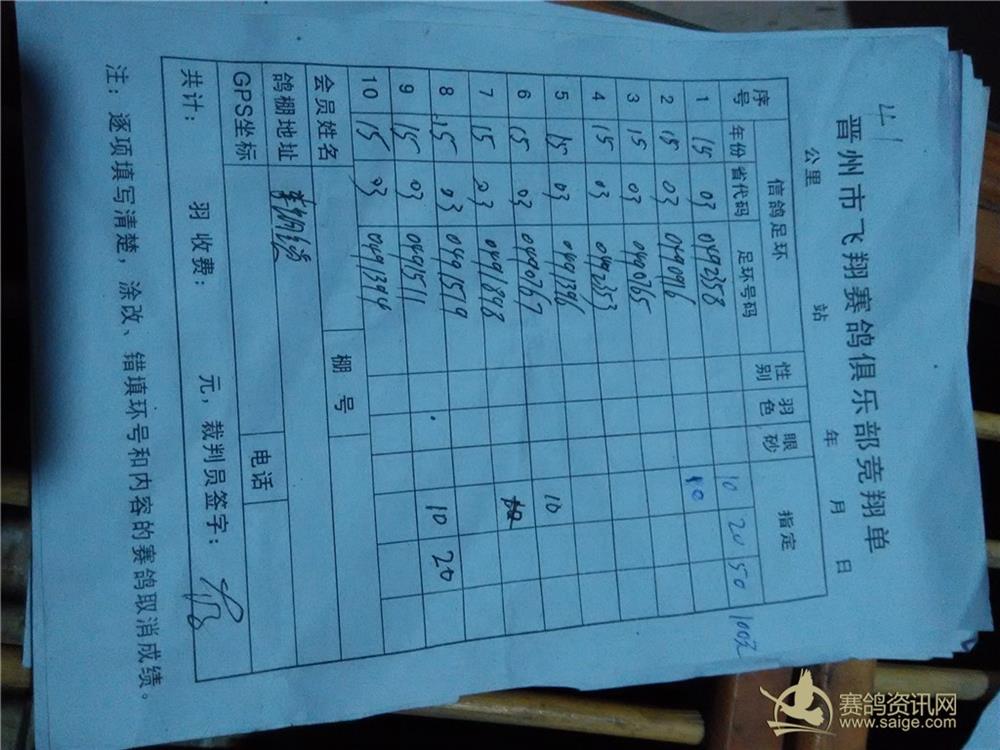 41
晋州市飞翔赛鸽俱乐部竞翔单
公里 站 年 月 日
序号 信鸽足环 性别 羽色 眼砂 指定
年份 省代码 足环号码 10 20 50 100元
1 15 03 0492358 10
2 15 03 0490916
3 15 03 0490765
4 15 03 0492353
5 15 03 0491396 10
6 15 03 0490767
7 15 03 0491898
8 15 03 0491579 10 20
9 15 03 0491511
10 15 03 0491394
会员姓名 棚号
鸽棚地址 电话
GPS坐标
共计: 羽收费: 元,裁判员签字:
注:逐项填写清楚,涂改、错填环号和内容的赛鸽取消成绩。
赛鸽资讯网
www.saige.com